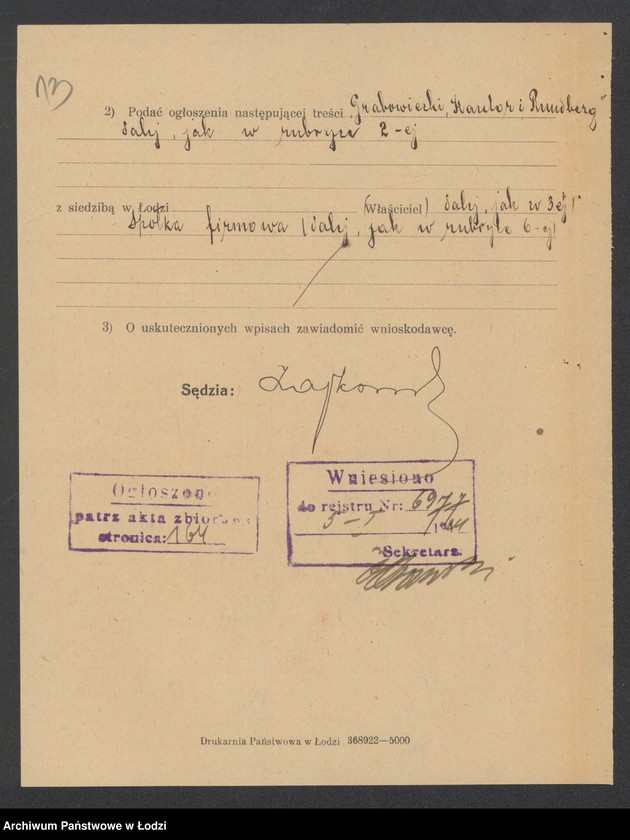 13
2) Podać ogłoszenia następującej treści „Grabowiecki, Kantor i Rundberg"
dalej, jak w rubryce 2-ej
z siedzibą w Łodzi (Właściciel) dalej, jak w 3ej
Spółka firmowa (dalej, jak w rubryce 6-ej)
3) O uskutecznionych wpisach zawiadomić wnioskodawcę.
Sędzia:
Ogłoszono
patrz akta zbiorowe
stronica: 164
Wniesiono
do rejestru Nr: 6977
Sekretarz
Drukarnia Państwowa w Łodzi 368922—5000
Archiwum Państwowe w Łodzi